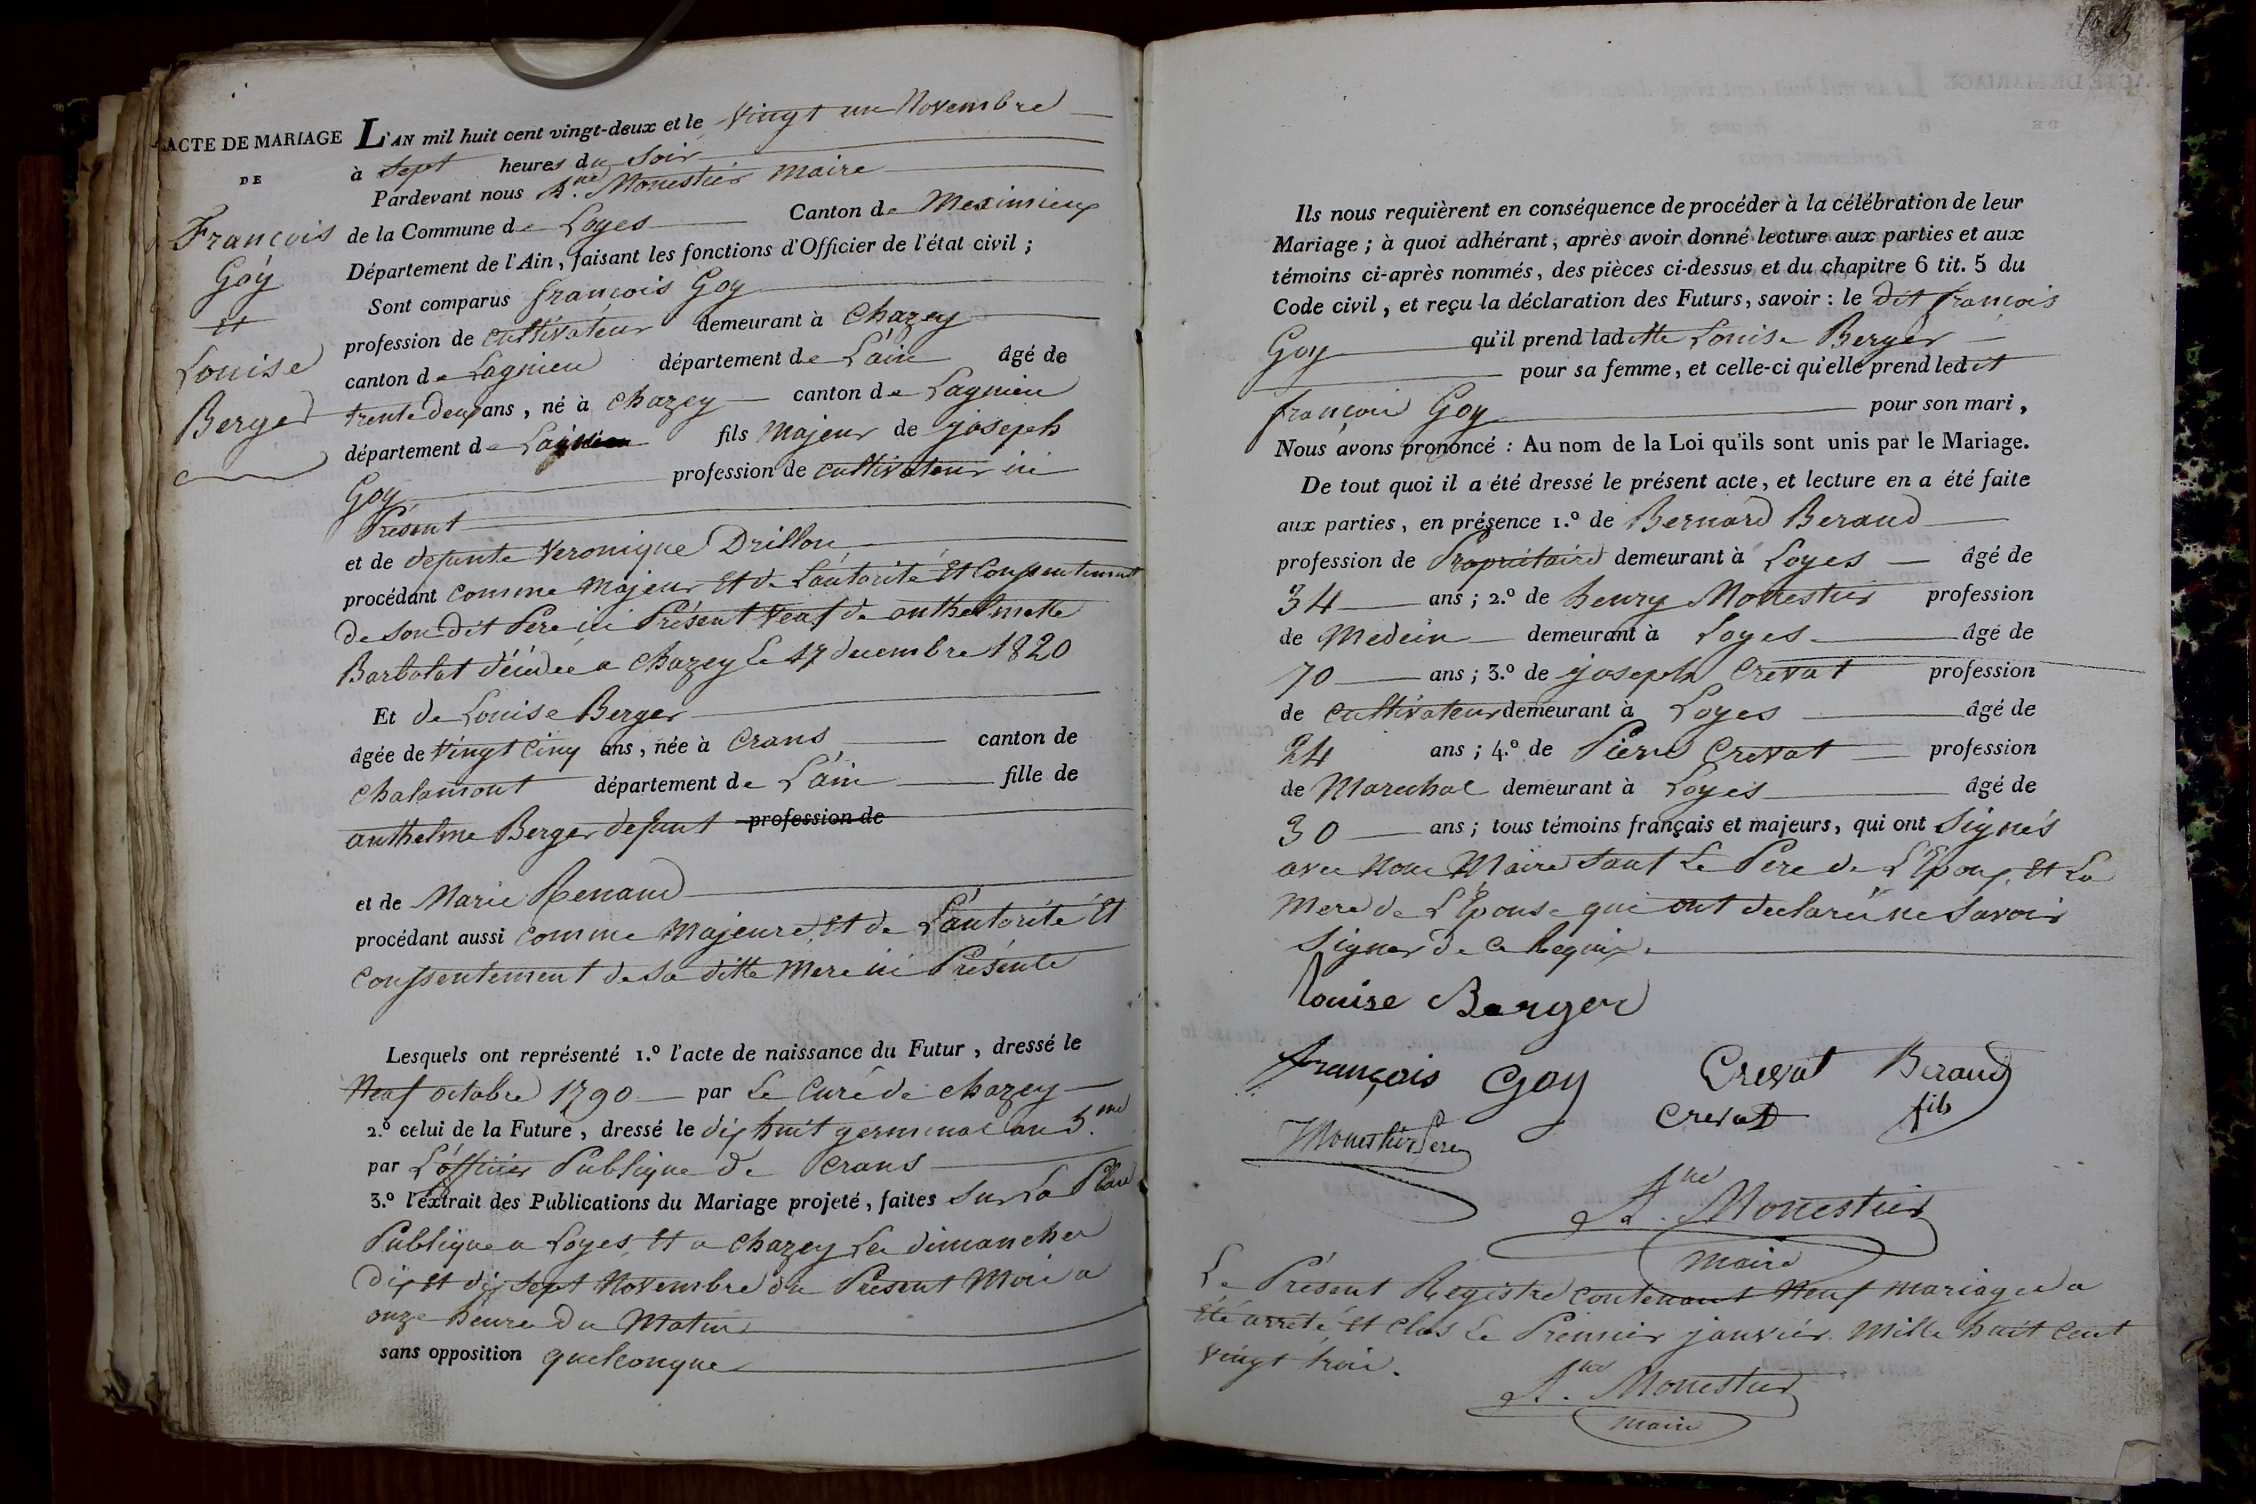 ACTE DE MARIAGE
DE
François
Goy
et
Louise
Berger
L'AN mil huit cent vingt-deux et le vingt un Novembre
à sept heures du soir
Pardevant nous A.ne Monestier maire
de la Commune de Loyes Canton de Meximieux
Département de l'Ain, faisant les fonctions d'Officier de l'état civil ;
Sont comparus françois Goy
profession de cultivateur demeurant à Chazey
canton de Lagnieu département de L'ain âgé de
trente deux ans, né à Chazey canton de Lagnieu
département de L'ain fils Majeur de joseph
Goy profession de cultivateur ici
Présent
et de defunte Veronique Drillon
procédant comme Majeur et de L'autorité et Conssentement
de son dit Pere ici Présent veuf de anthelmette
Barbolat décédée a Chazey le 17 decembre 1820
Et de Louise Berger
âgée de vingt cinq ans, née à Crans canton de
Chalamont département de L'ain fille de
anthelme Berger defunt profession de
et de Marie Renaud
procédant aussi comme Majeure et de L'autorité Et
Conssentement de sa ditte Mere ici Présente
Lesquels ont représenté 1.º l'acte de naissance du Futur, dressé le
Neuf octobre 1790 par Le Curé de Chazey
2.º celui de la Future, dressé le dix huit germinal an 5.me
par L'officier Publique de Crans
3.º l'extrait des Publications du Mariage projeté, faites sur La Place
Publique a Loyes et a Chazey Les dimanches
dix et dix sept Novembre du Present Mois a
onze heures Du Matin
sans opposition quelconque
Ils nous requièrent en conséquence de procéder à la célébration de leur
Mariage ; à quoi adhérant, après avoir donné lecture aux parties et aux
témoins ci-après nommés, des pièces ci-dessus et du chapitre 6 tit. 5 du
Code civil, et reçu la déclaration des Futurs, savoir : le dit françois
Goy qu'il prend ladette Louise Berger
pour sa femme, et celle-ci qu'elle prend ledit
françois Goy pour son mari,
Nous avons prononcé : Au nom de la Loi qu'ils sont unis par le Mariage.
De tout quoi il a été dressé le présent acte, et lecture en a été faite
aux parties, en présence 1.º de Bernard Beraud
profession de Propriétaire demeurant à Loyes âgé de
34 ans ; 2.º de henry Monestier profession
de Medecin demeurant à Loyes âgé de
70 ans ; 3.º de joseph Crevat profession
de cultivateur demeurant à Loyes âgé de
24 ans ; 4.º de Pierre Crevat profession
de Marechal demeurant à Loyes âgé de
30 ans ; tous témoins français et majeurs, qui ont signés
avec nous Maire sauf Le Pere de L'Epoux et La
Mere de L'Epouse qui ont declarés ne savoir
signer de ce Requis.
Louise Berger
françois Goy Crevat Beraud
Crevat fils
Monestier Pere
A.ne Monestier
maire
Le Présent Registre contenant Neuf mariages a
été arreté et clos Le Premier janvier Mille huit Cent
vingt trois.
A.ne Monestier
maire